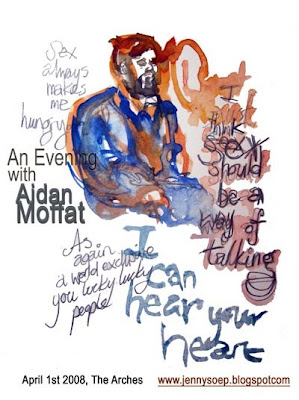 Sex
always
makes
me
hungry
An Evening
with
Aidan
Moffat
I
think
sex
should
be a
way of
talking
As
again
a world exclusive
you lucky lucky
people
I
can
hear your
heart
April 1st 2008, The Arches
www.jennysoep.blogspot.com